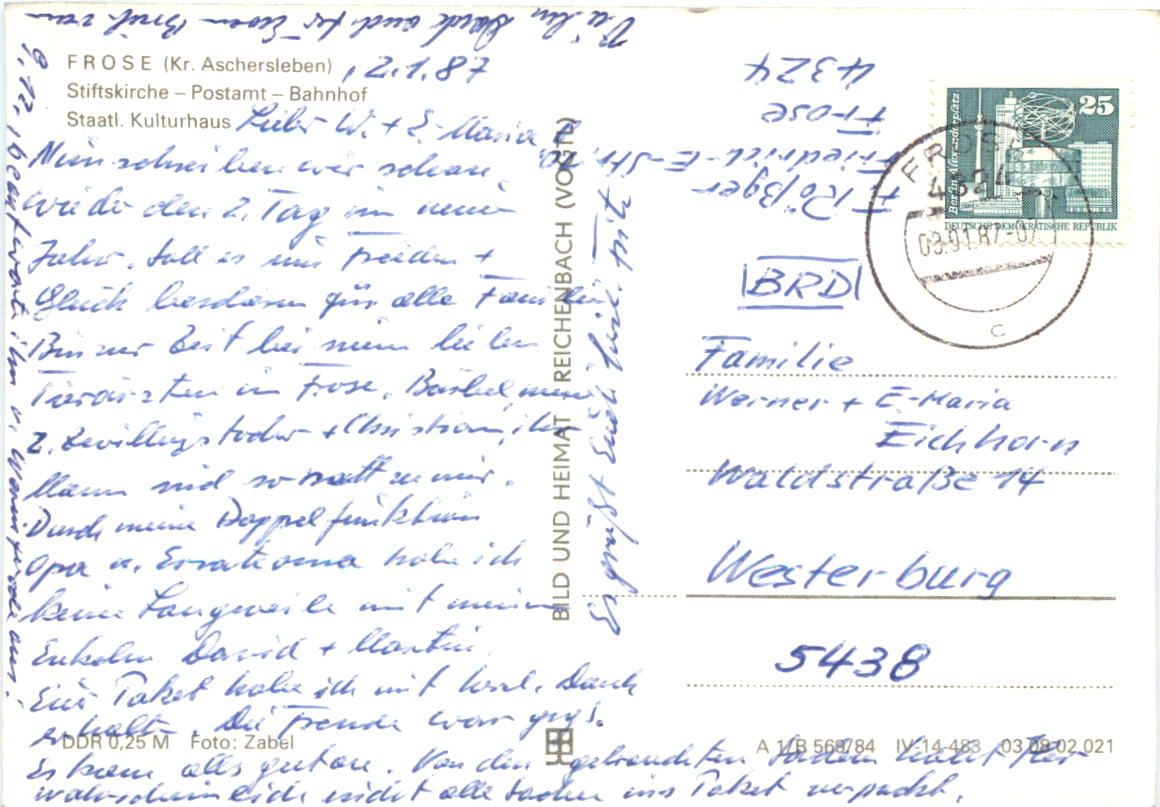 FROSE (Kr. Aschersleben)
Stiftskirche – Postamt – Bahnhof
Staatl. Kulturhaus
, 2.1.87
Lieber W. + E-Maria
Nun schreiben wir schon
wieder den 2. Tag im neuen
Jahr. Soll es uns Frieden +
Glück bescheren für alle Familien
Bin zur Zeit bei meinen lieben
Tierärzten in Frose. Bärbel, meine
2. Zwillingstochter + Christian, ihr
Mann sind so nett zu mir.
Durch meine Doppelfunktion
Opa u. Ersatzoma habe ich
keine Langweile mit meinen
Enkeln David + Martin.
Euer Paket habe ich mit herzl. Dank
erhalten. Die Freude war groß.
Es kam alles gut an. Von den gebrauchten Sachen habt Ihr
wahrscheinlich nicht alle Sachen ins Paket verpackt.
Vielen Dank auch für Euren Brief vom
9.12., beantworte ihn u.
Es grüßt Euch herzl.
BILD UND HEIMAT REICHENBACH (VOGTL)
F. Rößger
Friedrich-E-Str.
Frose
4324
25
Berlin, Alexanderplatz
DEUTSCHE DEMOKRATISCHE REPUBLIK
FROSE
4324
09.01.87-07
c
BRD
Familie
Werner + E-Maria
Eichhorn
Waldstraße 14
Westerburg
5438
DDR 0,25 M Foto: Zabel
A 1/B 569/84 IV-14-483 03 08 02 021